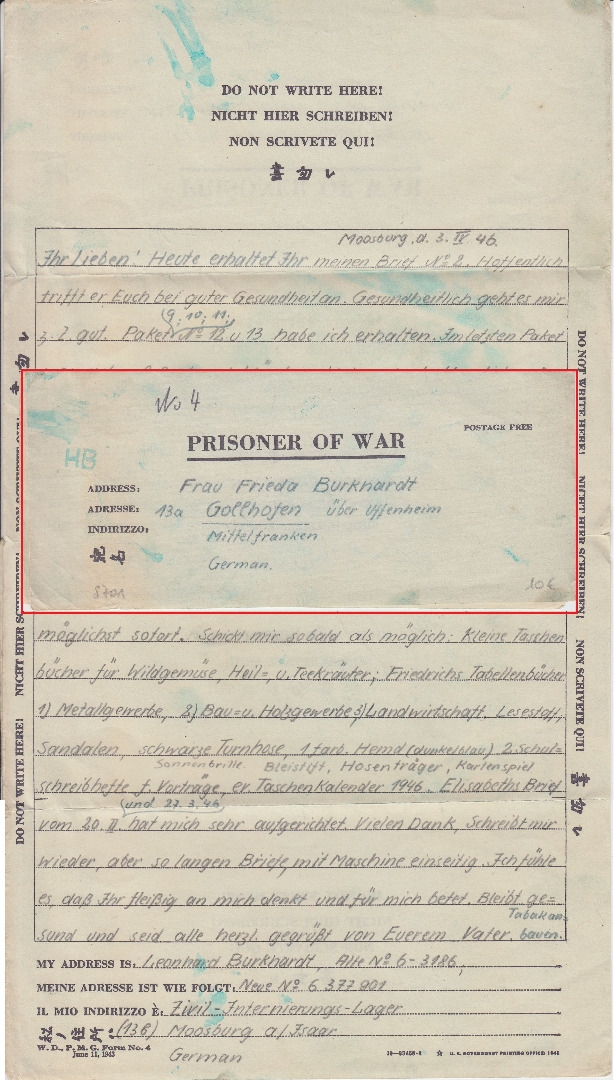 DO NOT WRITE HERE!
NICHT HIER SCHREIBEN!
NON SCRIVETE QUI!
書 勿 レ
Moosburg, d. 3. IV. 46.
Ihr Lieben! Heute erhaltet Ihr meinen Brief No 2. Hoffentlich
trifft er Euch bei guter Gesundheit an. Gesundheitlich geht es mir
(9., 10., 11.,
z. Z. gut. Paket No 12 u 13 habe ich erhalten. Im letzten Paket
No 4
PRISONER OF WAR
POSTAGE FREE
HB
ADDRESS: Frau Frieda Burkhardt
ADRESSE: 13a Gollhofen über Uffenheim
INDIRIZZO: Mittelfranken
German.
8701
10€
möglichst sofort. Schickt mir sobald als möglich: Kleine Taschen
bücher für Wildgemüse, Heil=, u. Teekräuter; Friedrichs Tabellenbücher
1) Metallgewerbe, 2) Bau= u. Holzgewerbe 3) Landwirtschaft. Lesestoff,
Sandalen, schwarze Turnhose, 1 farb. Hemd (dunkelblau) 2 Schul=
Sonnenbrille. Bleistift, Hosenträger, Kartenspiel
schreibhefte f. Vorträge, ev. Taschenkalender 1946. Elisabeths Brief
(und 27. 3. 46)
vom 20. II. hat mich sehr aufgerichtet. Vielen Dank, Schreibt mir
wieder, aber so langen Briefe, mit Maschine einseitig. Ich fühle
es, daß Ihr fleißig an mich denkt und für mich betet. Bleibt ge=
Tabak an=
sund und seid alle herzl. gegrüßt von Euerem Vater. bauen.
MY ADDRESS IS: Leonhard Burkhardt, Alte No 6-3186,
MEINE ADRESSE IST WIE FOLGT: Neue No 6 377 901
IL MIO INDIRIZZO È: Zivil-Internierungs-Lager
私ノ住所 (13b) Moosburg a/Isaar
German
W. D., P. M. G. Form No. 4
June 11, 1943
U. S. GOVERNMENT PRINTING OFFICE
DO NOT WRITE HERE! NICHT HIER SCHREIBEN!
DO NOT WRITE HERE! NICHT HIER SCHREIBEN! NON SCRIVETE QUI! 書 勿 レ